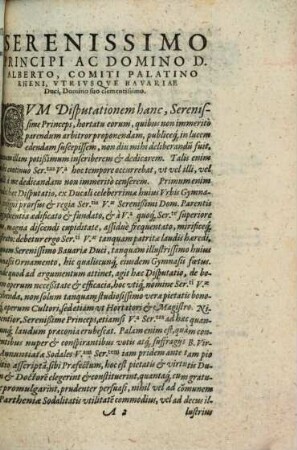 SERENISSIMO
PRINCIPI AC DOMINO D.
ALBERTO, COMITI PALATINO
RHENI, VTRIVSQVE BAVARIAE
Duci, Domino suo clementissimo.
CVM Disputationem hanc, Serenis-
sime Princeps, hortatu eorum, quibus non immeritò
parendum arbitror proponendam, publicéq́; in lucem
edendam suscepissem, non diu mihi deliberandũ fuit,
illum potißimùm inscriberem & dedicarem. Talis enim
continuò Ser. V.ª hoc tempore occurrebat, vt vel illi, vel
dedicandam non immeritò censerem. Primum enim
hæc Disputatio, ex Ducali celeberrima huius Vrbis Gymna-
prorsus & regia Ser. V.æ Serenissimi Dom. Parentis
ædificata & fundato, & à V.ª quoq́; Ser. superiore
magna discendi cupiditate, assiduè frequentato, mirificeq́;
debetur ergo Ser. V.æ tanquam patriæ laudis hæredi,
Serenissimo Bauariæ Duci, tanquam illustrissimo huius
Ornamento, hic qualiscunq́, eiusdem Gymnasij fœtus.
quod ad argumentum attinet, agit hæc Disputatio, de bo-
operum necessitate & efficacia, hoc vtiq́, nomine Ser. V.æ
non solum tanquam studiosissimo vera pietatis bono-
operum Cultori, sed etiam vt Hortatori & Magistro. Ni-
Serenissime Princeps, etiamsi V.ª Ser. ad hæc quan-
laudum præconia erubescat. Palam enim est, quàm con-
nuper & conspirantibus votis atq́, suffragijs B. Vir-
Annuntiatæ Sodales V.am Ser. iam pridem ante tam pio
asscriptã, sibi Præfectum, hoc est pietatis & virtutis Du-
& Doctorẽ elegerint & constituerint, quantaq́, cum gratu-
promulgarint, prudenter persuasi, nihil vel ad cõmunem
Partheniæ Sodalitatis vtilitatẽ commodius, vel ad decus il-
A 2 lustrius